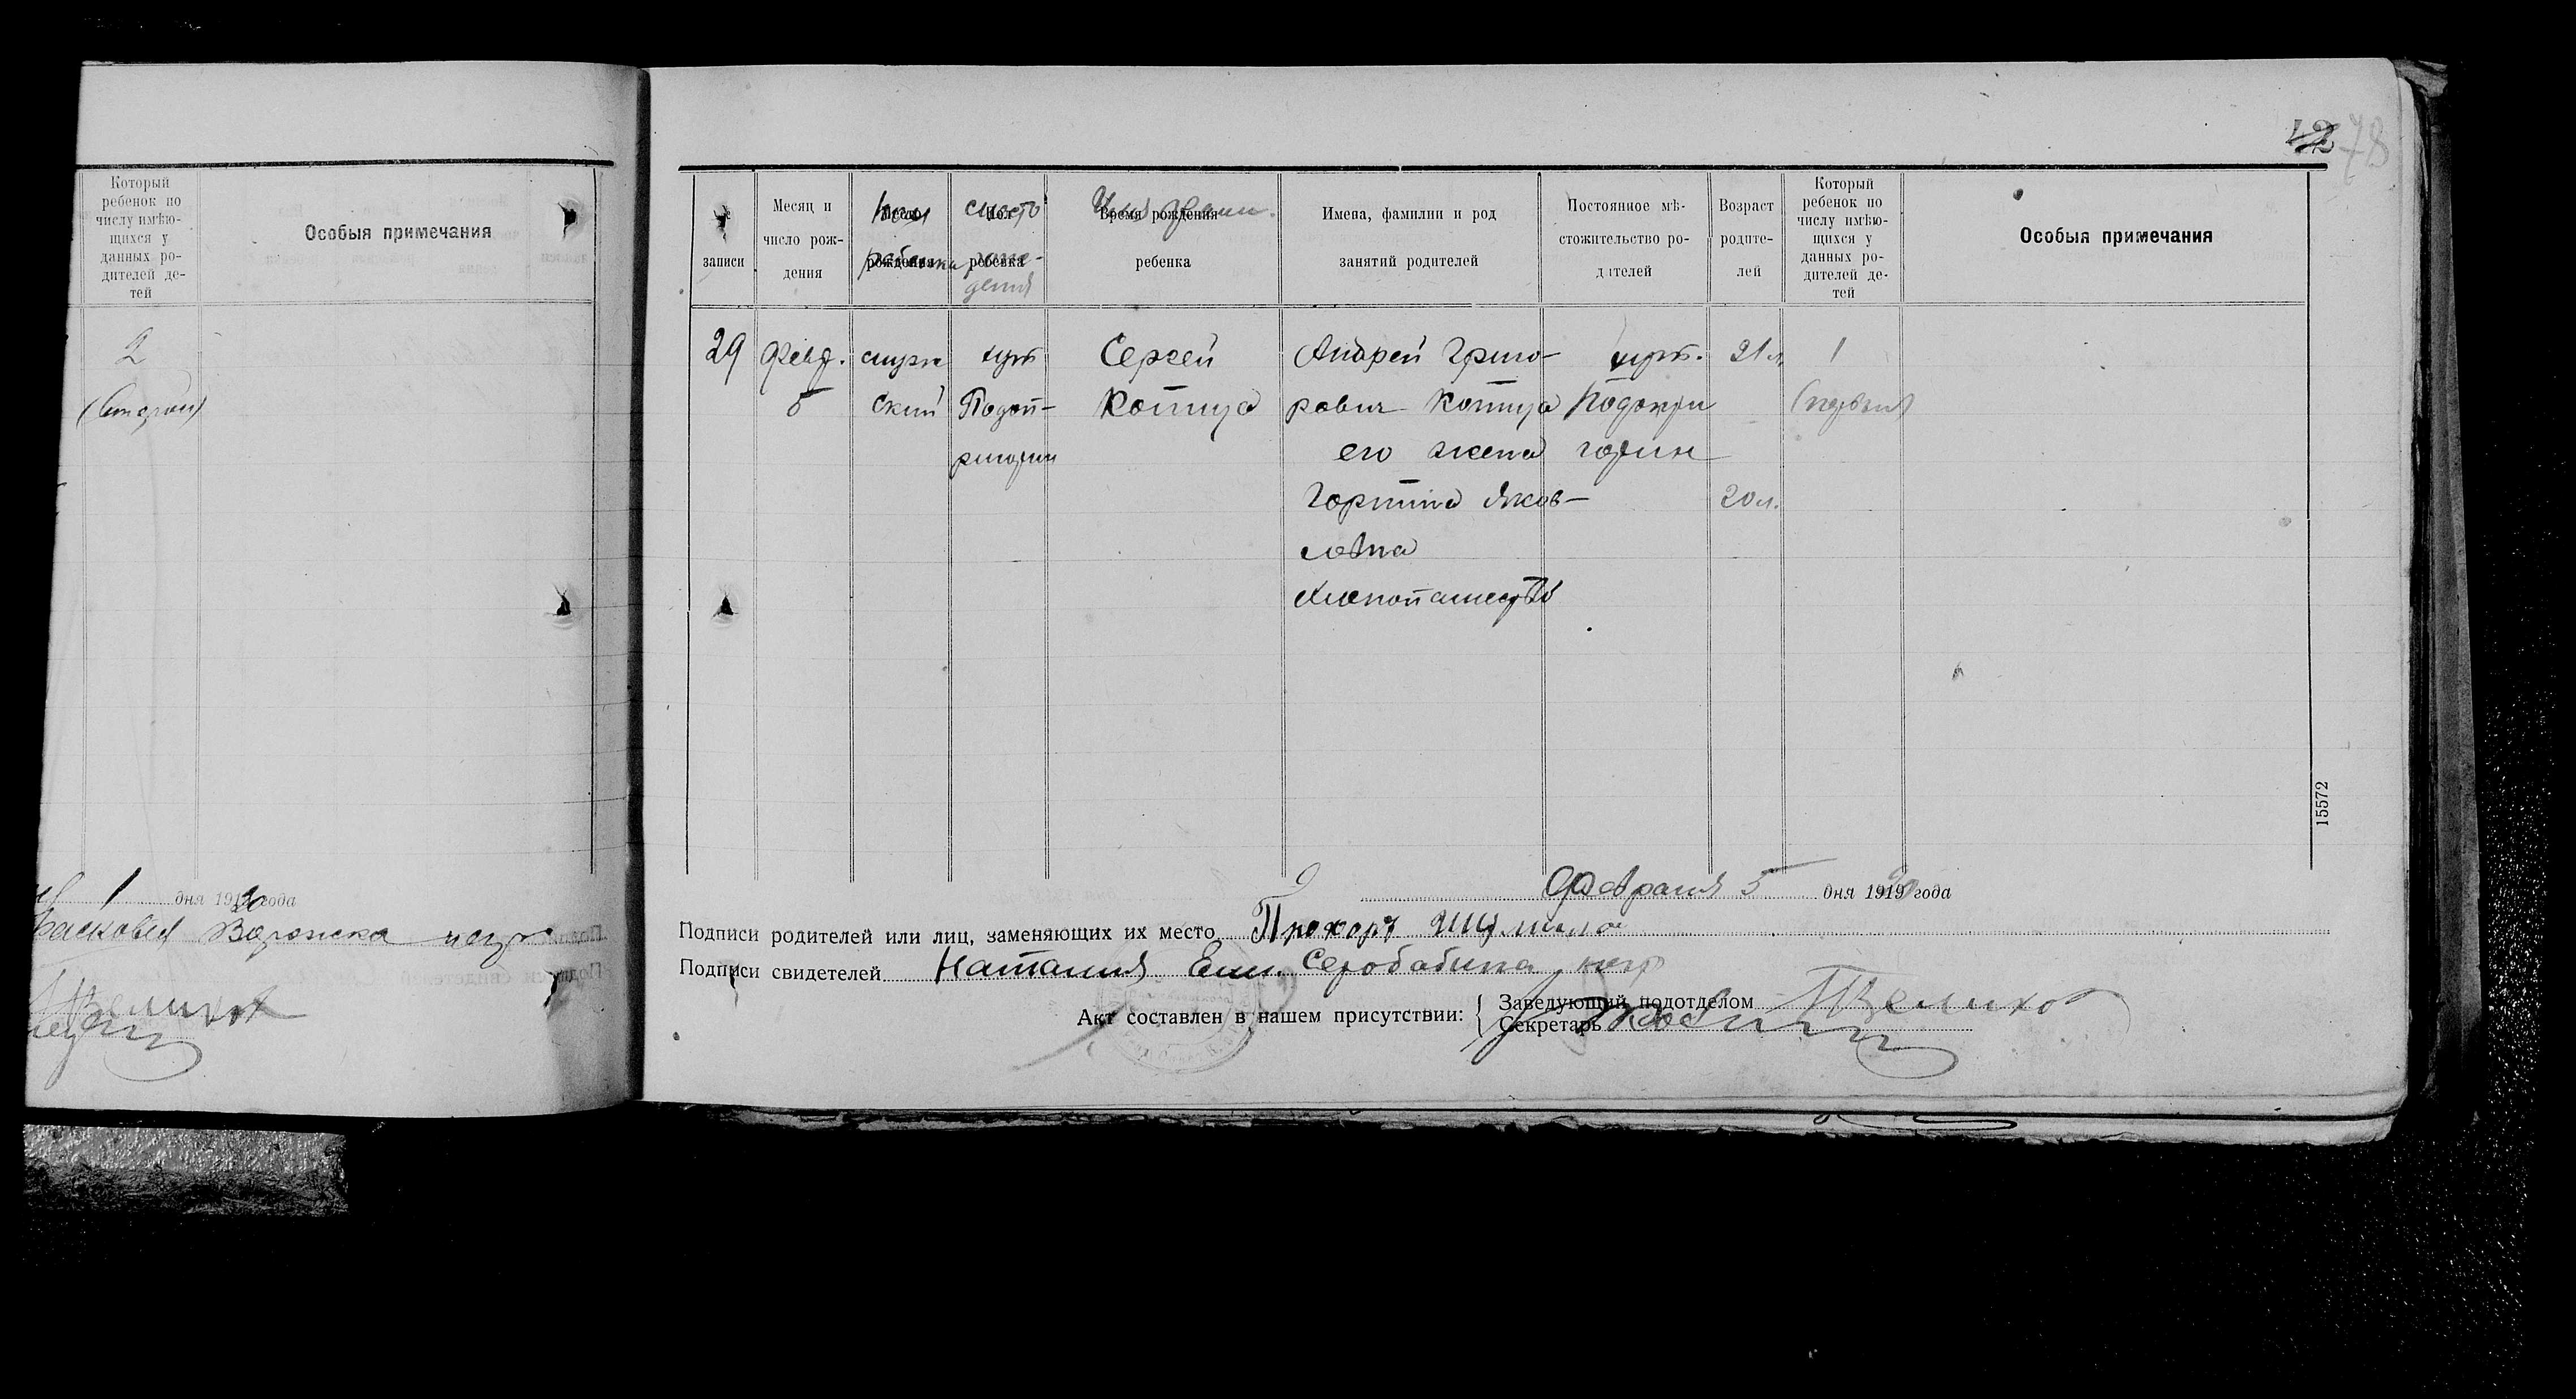 Который
ребенок по
числу имѣю-
щихся у
данных ро-
дителей де-
тей
Особыя примечания
2
1 дня 1919 20 года
Воронска негр
Великов
42 78
№
записи
Месяц и
число рож-
дения
Пол
ребенка
рождения
место
рож-
дения
ребенка
Имя
Время рождения
ребенка
Имена, фамилии и род
занятий родителей
Постоянное мѣ-
стожительство ро-
дителей
Возраст
родите-
лей
Который
ребенок по
числу имѣю-
щихся у
данных ро-
дителей де-
тей
Особыя примечания
29
Февр.
5
мужс
ский
хут
Подоп-
ригорин
Сергей
Коптца
Андрей Григо-
рович Коптца
его жена
Горпина Яков-
левна
Хлебопашество
хут.
Подопри
горин
21 л.
20 л.
1
(первый)
15572
Февраля 5 дня 1919 20 года
Подписи родителей или лиц, заменяющих их место Прохоръ Шумило
Подписи свидетелей Наталия Ем. Серобабина негр
Акт составлен в нашем присутствии:
Заведующий подотделом Великов
Секретарь